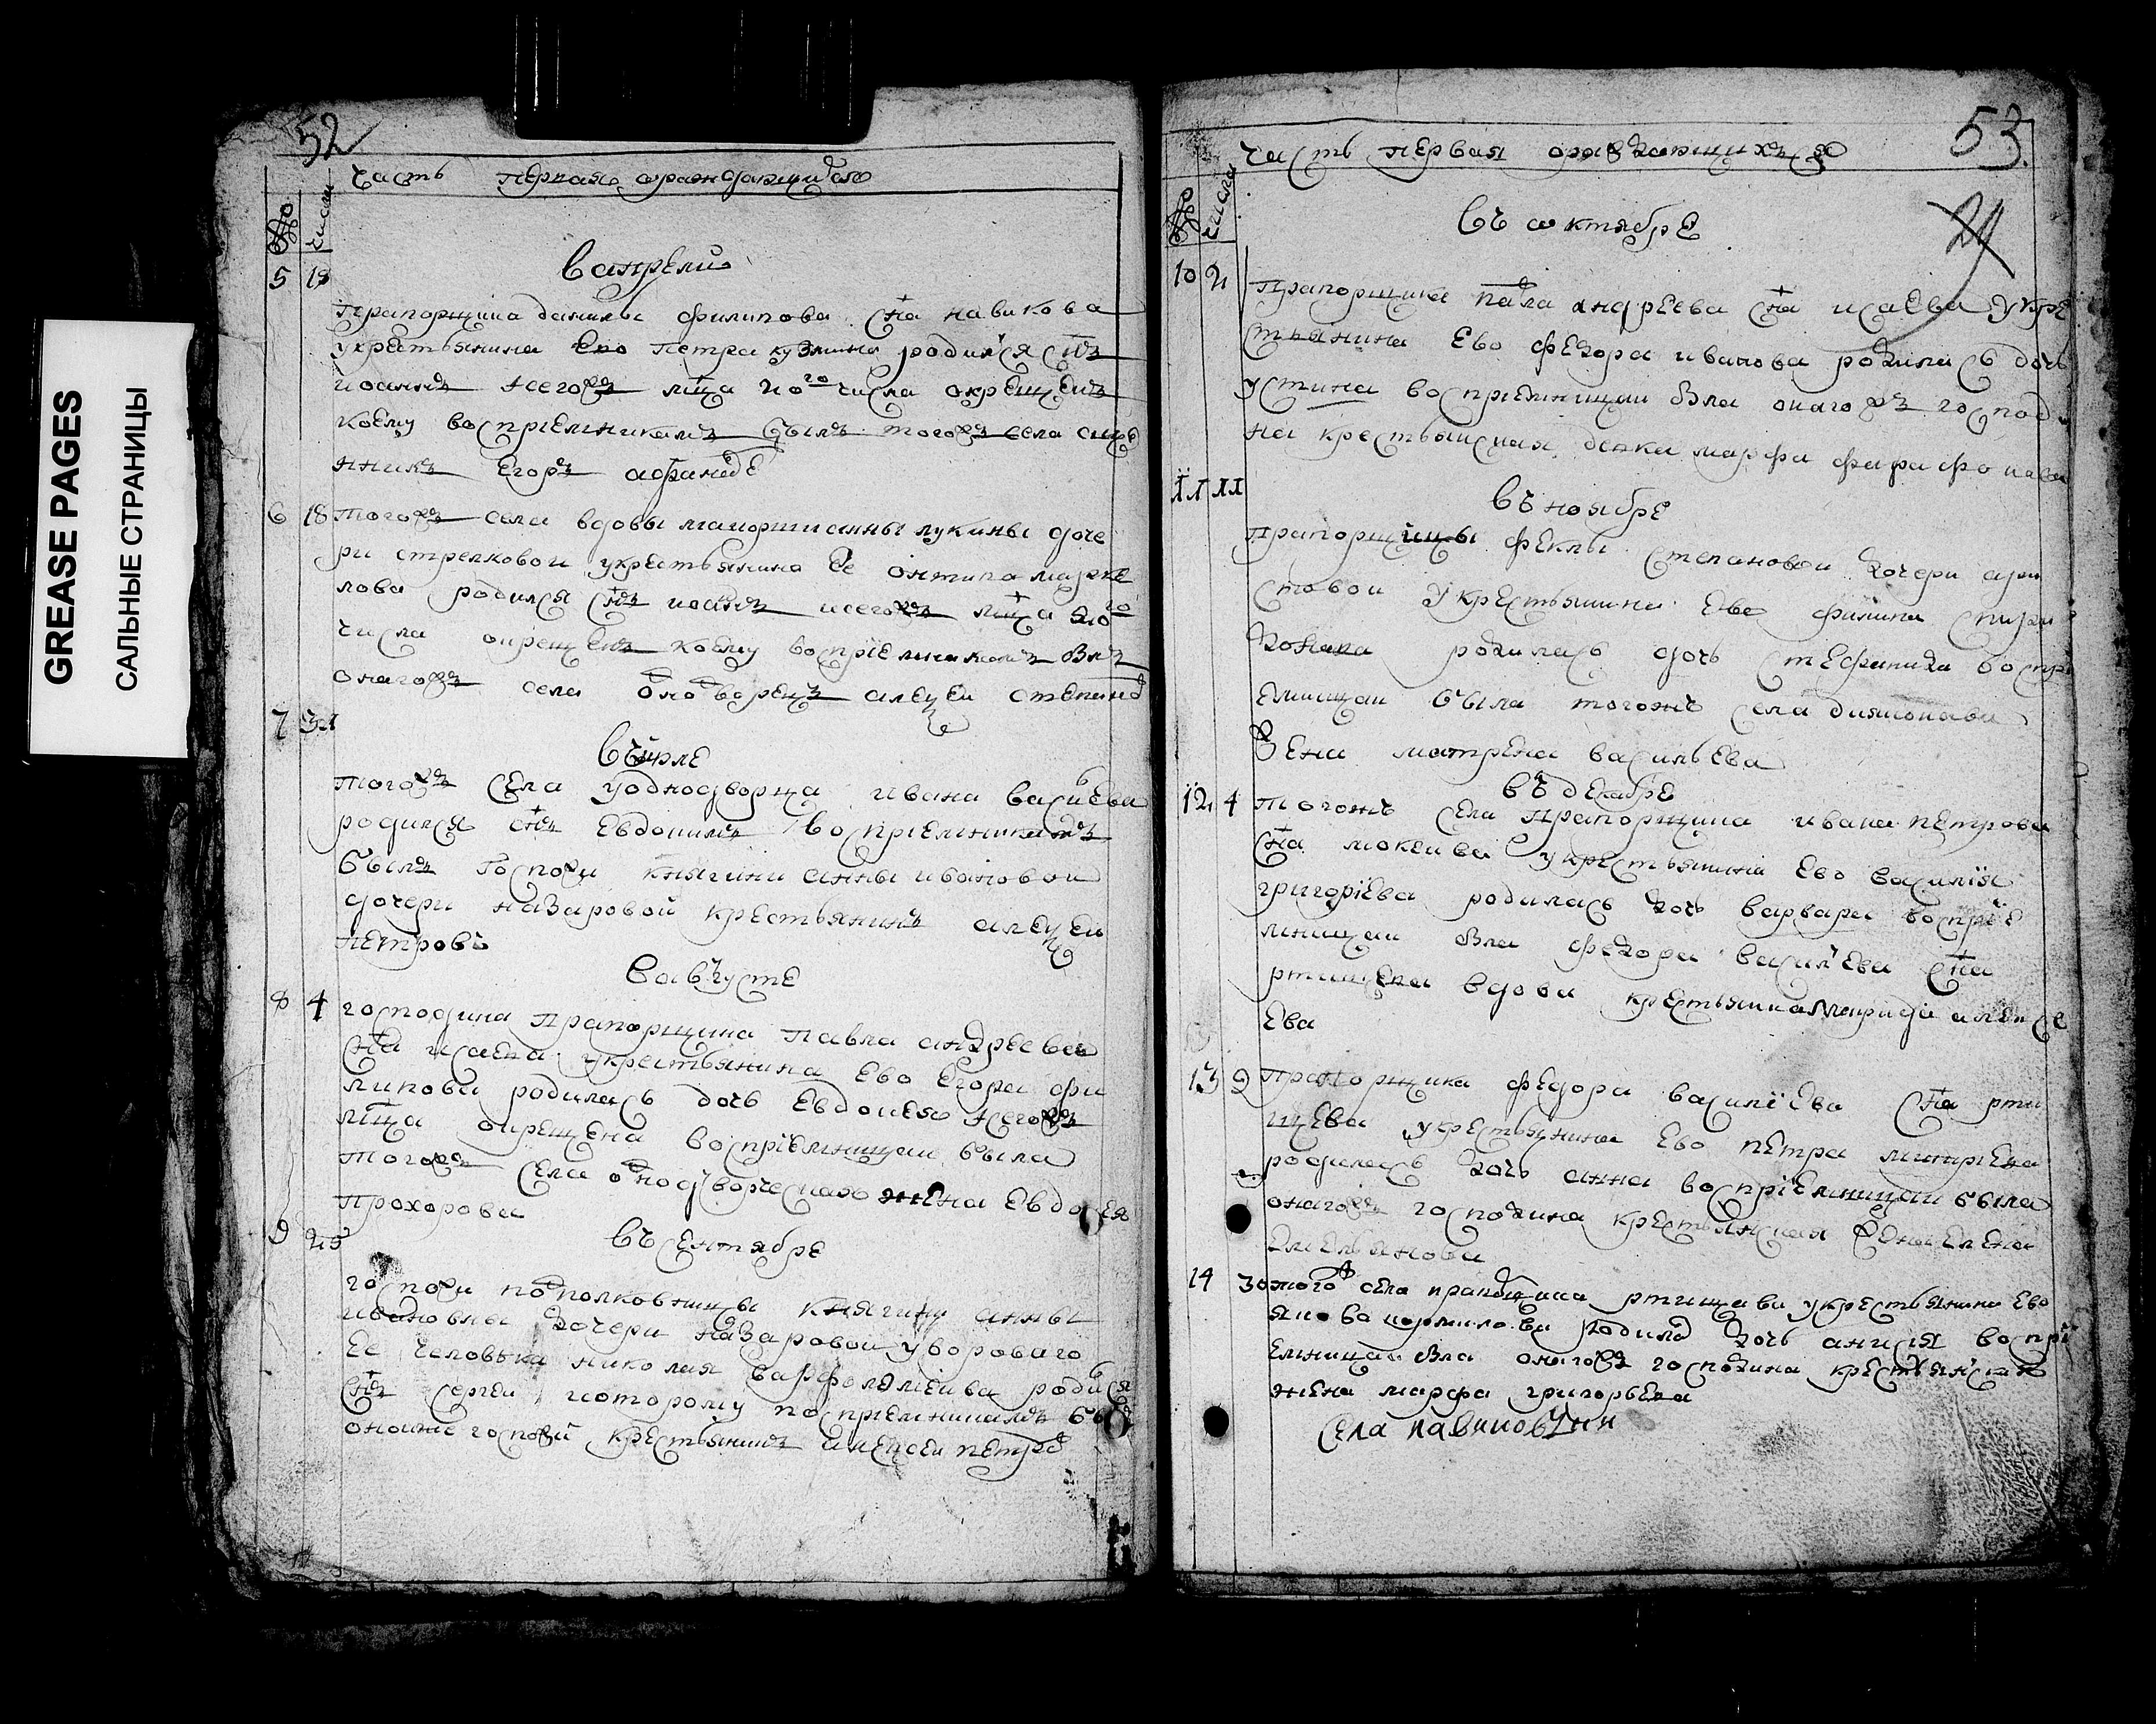 GREASE PAGES
САЛЬНЫЕ СТРАНИЦЫ
52
часть первая ораждающихся
№ числа
в апрели
5 18
прапорщика данилы филипова сна навикова
укрестьянина ево петра кузмина родился снъ
иоаннъ всегожъ мца 20го числа окрещенъ
коему восприемникомъ былъ тогожъ села
егоръ
6 18 тогожъ села вдовы анны лукины доче
ри стрелковои укрестьянина ее онтипа марке
лова родился снъ иоаннъ всегожъ мца 20го
числа окрещенъ коему воспріемникомъ блъ
оногожъ села однодворецъ алеѯеи степанов
7 31
въ июле
тогожъ села уоднодворца ивана васильева
родился снъ евдокимъ воспріемникомъ
былъ госпожи княгини анны ивановои
дочери назаровои крестьянинъ алеѯеи
петровъ
в августе
8 4 господина прапорщика павла андреева
сна исаева укрестьянина ево егора фи
липова родилась дочь евдокея всегожъ
мца окрещена воспріемницеи была
тогожъ села однодворческая жена евдокея
прохорова
въ сентябре
9 25
госпожи подполковницы княгини анны
ивановны дочери назаровои удворового
ее человека николая варфоломеива родился
снъ сергеи которому воспріемникомъ былъ
оноиже госпожи крестьянинъ алексеи петров
53
24
часть первая ораждающихся
№ числа
въ октябре
10 21 прапорщика павла андреева сна исаева укре
стьянина ево федора иванова родилась дочь
устина воспріемницеи бла оногожъ господи
на крестьянская девка марфа
11 11
въ ноябре
прапорщицы феклы степановои дочери
стовои укрестьянина ево филипа спири
донова родилась дочь стефанида воспрі
емницеи была тогожъ села
жена матрена васильева
въ декабре
12 4 тогожъ села прапорщика ивана петрова
сна мокеива укрестьянина ево василія
григоріева родилась дочь варвара воспріе
мницеи бла федора василева сна
ртищева вдова крестьянка алексе
ева
13 9 прапорщика федора василіева сна рти
щева укрестьянина ево петра
родилась дочь анна воспріемницеи была
оногожъ господина крестьянская жена елена
емельянова
14 30 тогож села прапорщика ртищева укрестьянина ево
якова родилас дочь анисія воспрі
емницеи бла оногожъ господина крестьянская
жена марфа григорьева
села